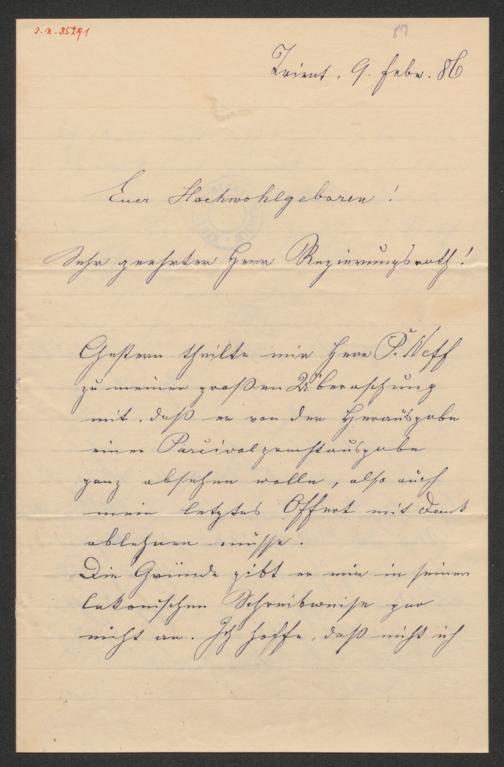 J.N. 85291
87
Trient, 9. Febr. 86
Euer Hochwohlgeboren!
Sehr geehrter Herr Regierungsrath!
Gestern theilte mir Herr P. Neff
zu meiner großen Überraschung
mit, daß er von der Herausgabe
einer Parcivalprachtausgabe
ganz absehen wolle, also auch
mein letztes Offert mit Dank
ablehnen müsse.
Die Gründe gibt er mir in seiner
lakonischen Schreibweise gar
nicht an. Ich hoffe, daß nicht ich